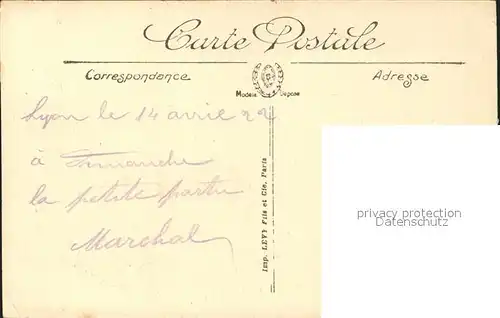 Carte Postale
Correspondance
Adresse
Modèle Déposé
Lyon le 14 avril 22
à Dimanche
la petite
Marchal
Imp. LEVY Fils et Cie, Paris
privacy protection
Datenschutz